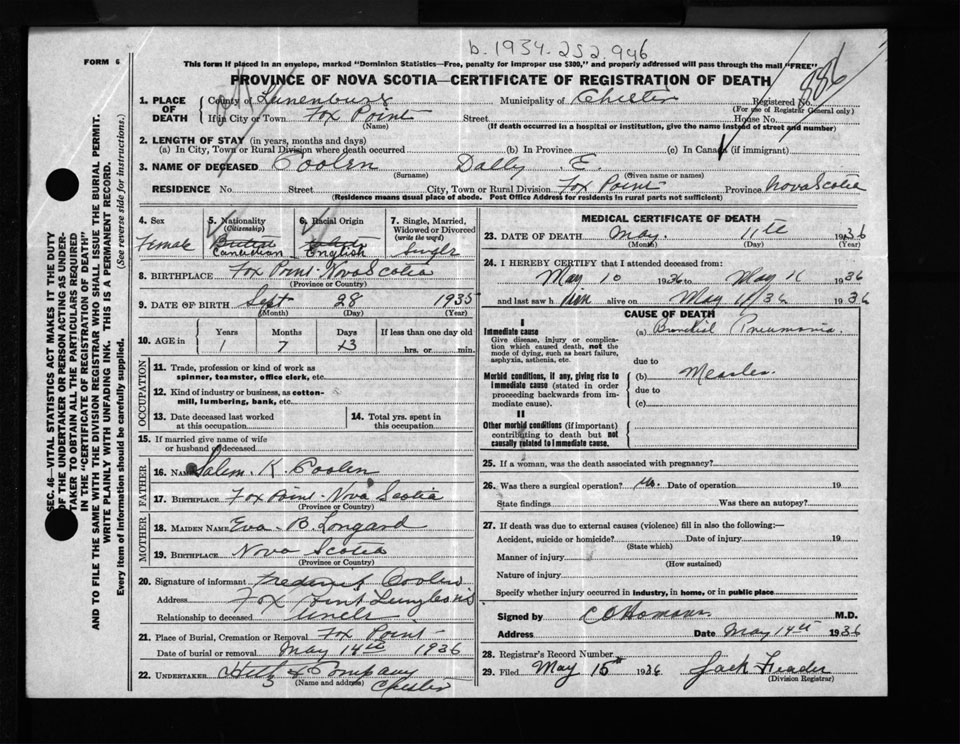 b. 1934-252946
FORM 6
This form if placed in an envelope, marked "Dominion Statistics—Free, penalty for improper use $300," and properly addressed will pass through the mail "FREE"
PROVINCE OF NOVA SCOTIA—CERTIFICATE OF REGISTRATION OF DEATH
886
1. PLACE OF DEATH
County of Lunenburg Municipality of Chester Registered No.
(For use of Registrar General only)
If in City or Town Fox Point Street House No.
(Name) (If death occurred in a hospital or institution, give the name instead of street and number)
2. LENGTH OF STAY (in years, months and days)
(a) In City, Town or Rural Division where death occurred (b) In Province (c) In Canada (if immigrant)
3. NAME OF DECEASED Coolen Dally E.
(Surname) (Given name or names)
RESIDENCE No. Street City, Town or Rural Division Fox Point Province Nova Scotia
(Residence means usual place of abode. Post Office Address for residents in rural parts not sufficient)
SEC. 46—VITAL STATISTICS ACT MAKES IT THE DUTY
OF THE UNDERTAKER OR PERSON ACTING AS UNDER-
TAKER TO OBTAIN ALL THE PARTICULARS REQUIRED
IN THE "CERTIFICATE OF REGISTRATION OF DEATH"
AND TO FILE THE SAME WITH THE DIVISION REGISTRAR WHO SHALL ISSUE THE BURIAL PERMIT.
WRITE PLAINLY WITH UNFADING INK. THIS IS A PERMANENT RECORD.
Every item of information should be carefully supplied. (See reverse side for instructions.)
4. Sex
Female
5. Nationality
(Citizenship)
British
Canadian
6. Racial Origin
English
7. Single, Married,
Widowed or Divorced
(write the word)
Single
8. BIRTHPLACE Fox Point - Nova Scotia
(Province or Country)
9. DATE OF BIRTH Sept 28 1935
(Month) (Day) (Year)
10. AGE in
Years Months Days If less than one day old
1 7 13 hrs. or min.
OCCUPATION
11. Trade, profession or kind of work as
spinner, teamster, office clerk, etc.
12. Kind of industry or business, as cotton-
mill, lumbering, bank, etc.
13. Date deceased last worked
at this occupation
14. Total yrs. spent in
this occupation
15. If married give name of wife
or husband of deceased
FATHER
16. NAME Salem K. Coolen
17. BIRTHPLACE Fox Point - Nova Scotia
(Province or Country)
MOTHER
18. MAIDEN NAME Eva B. Longard
19. BIRTHPLACE Nova Scotia
(Province or Country)
20. Signature of informant Frederick Coolen
Address Fox Point
Relationship to deceased Uncle
21. Place of Burial, Cremation or Removal Fox Point
Date of burial or removal May 14th 1936
22. UNDERTAKER Company
(Name and address) Chester
MEDICAL CERTIFICATE OF DEATH
23. DATE OF DEATH May. 11th 1936
(Month) (Day) (Year)
24. I HEREBY CERTIFY that I attended deceased from:
May 10 1936 to May 11 1936
and last saw h him alive on May 11/36 1936
CAUSE OF DEATH
I
Immediate cause
Give disease, injury or complica-
tion which caused death, not the
mode of dying, such as heart failure,
asphyxia, asthenia, etc.
(a) Bronchial Pneumonia.
due to
Morbid conditions, if any, giving rise to
immediate cause (stated in order
proceeding backwards from im-
mediate cause).
(b) Measles.
due to
(c)
II
Other morbid conditions (if important)
contributing to death but not
causally related to immediate cause.
25. If a woman, was the death associated with pregnancy?
26. Was there a surgical operation? No. Date of operation 19
State findings Was there an autopsy?
27. If death was due to external causes (violence) fill in also the following:—
Accident, suicide or homicide? Date of injury 19
(State which)
Manner of injury
(How sustained)
Nature of injury
Specify whether injury occurred in industry, in home, or in public place
Signed by M.D.
Address Date May 14th 1936
28. Registrar's Record Number
29. Filed May 15th 1936 Jack
(Division Registrar)